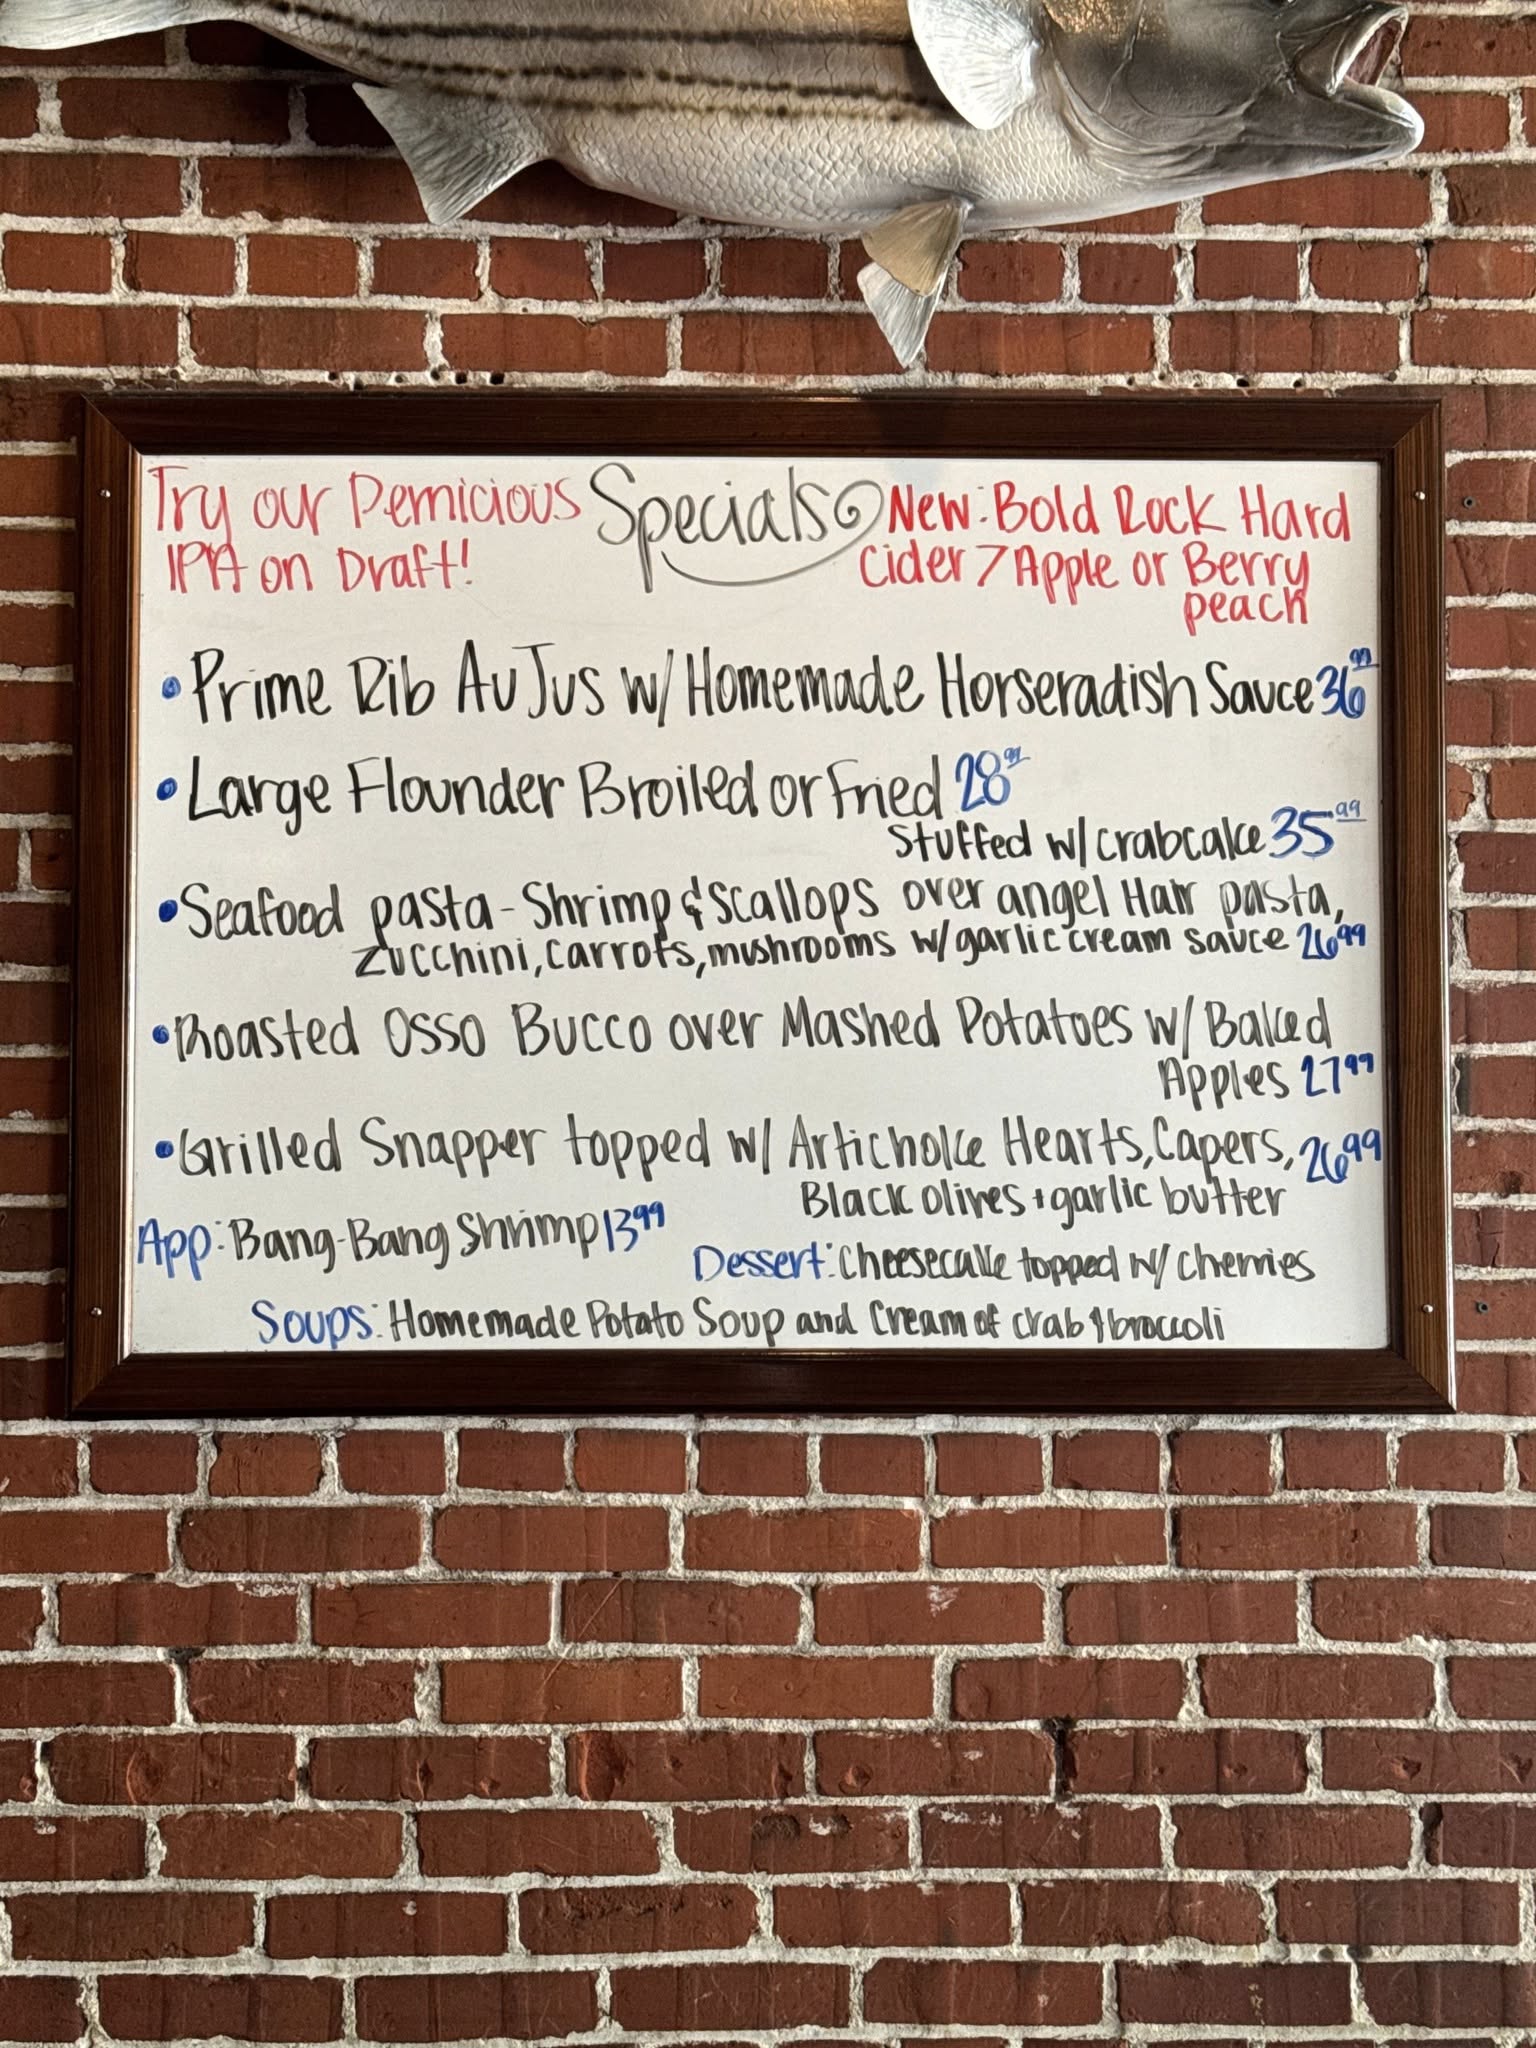 Try our Pernicious
IPA on Draft!
Specials
New: Bold Rock Hard
Cider 7 Apple or Berry
peach
• Prime Rib Au Jus w/ Homemade Horseradish Sauce 36 99
• Large Flounder Broiled or Fried 28 99
Stuffed w/ crabcake 35 99
• Seafood pasta - Shrimp & Scallops over angel Hair pasta,
zucchini, carrots, mushrooms w/ garlic cream sauce 26 99
• Roasted Osso Bucco over Mashed Potatoes w/ Baked
Apples 27 99
• Grilled Snapper topped w/ Artichoke Hearts, Capers, 26 99
Black olives + garlic butter
App: Bang-Bang Shrimp 13 99
Dessert: Cheesecake topped w/ cherries
Soups: Homemade Potato Soup and Cream of crab & broccoli